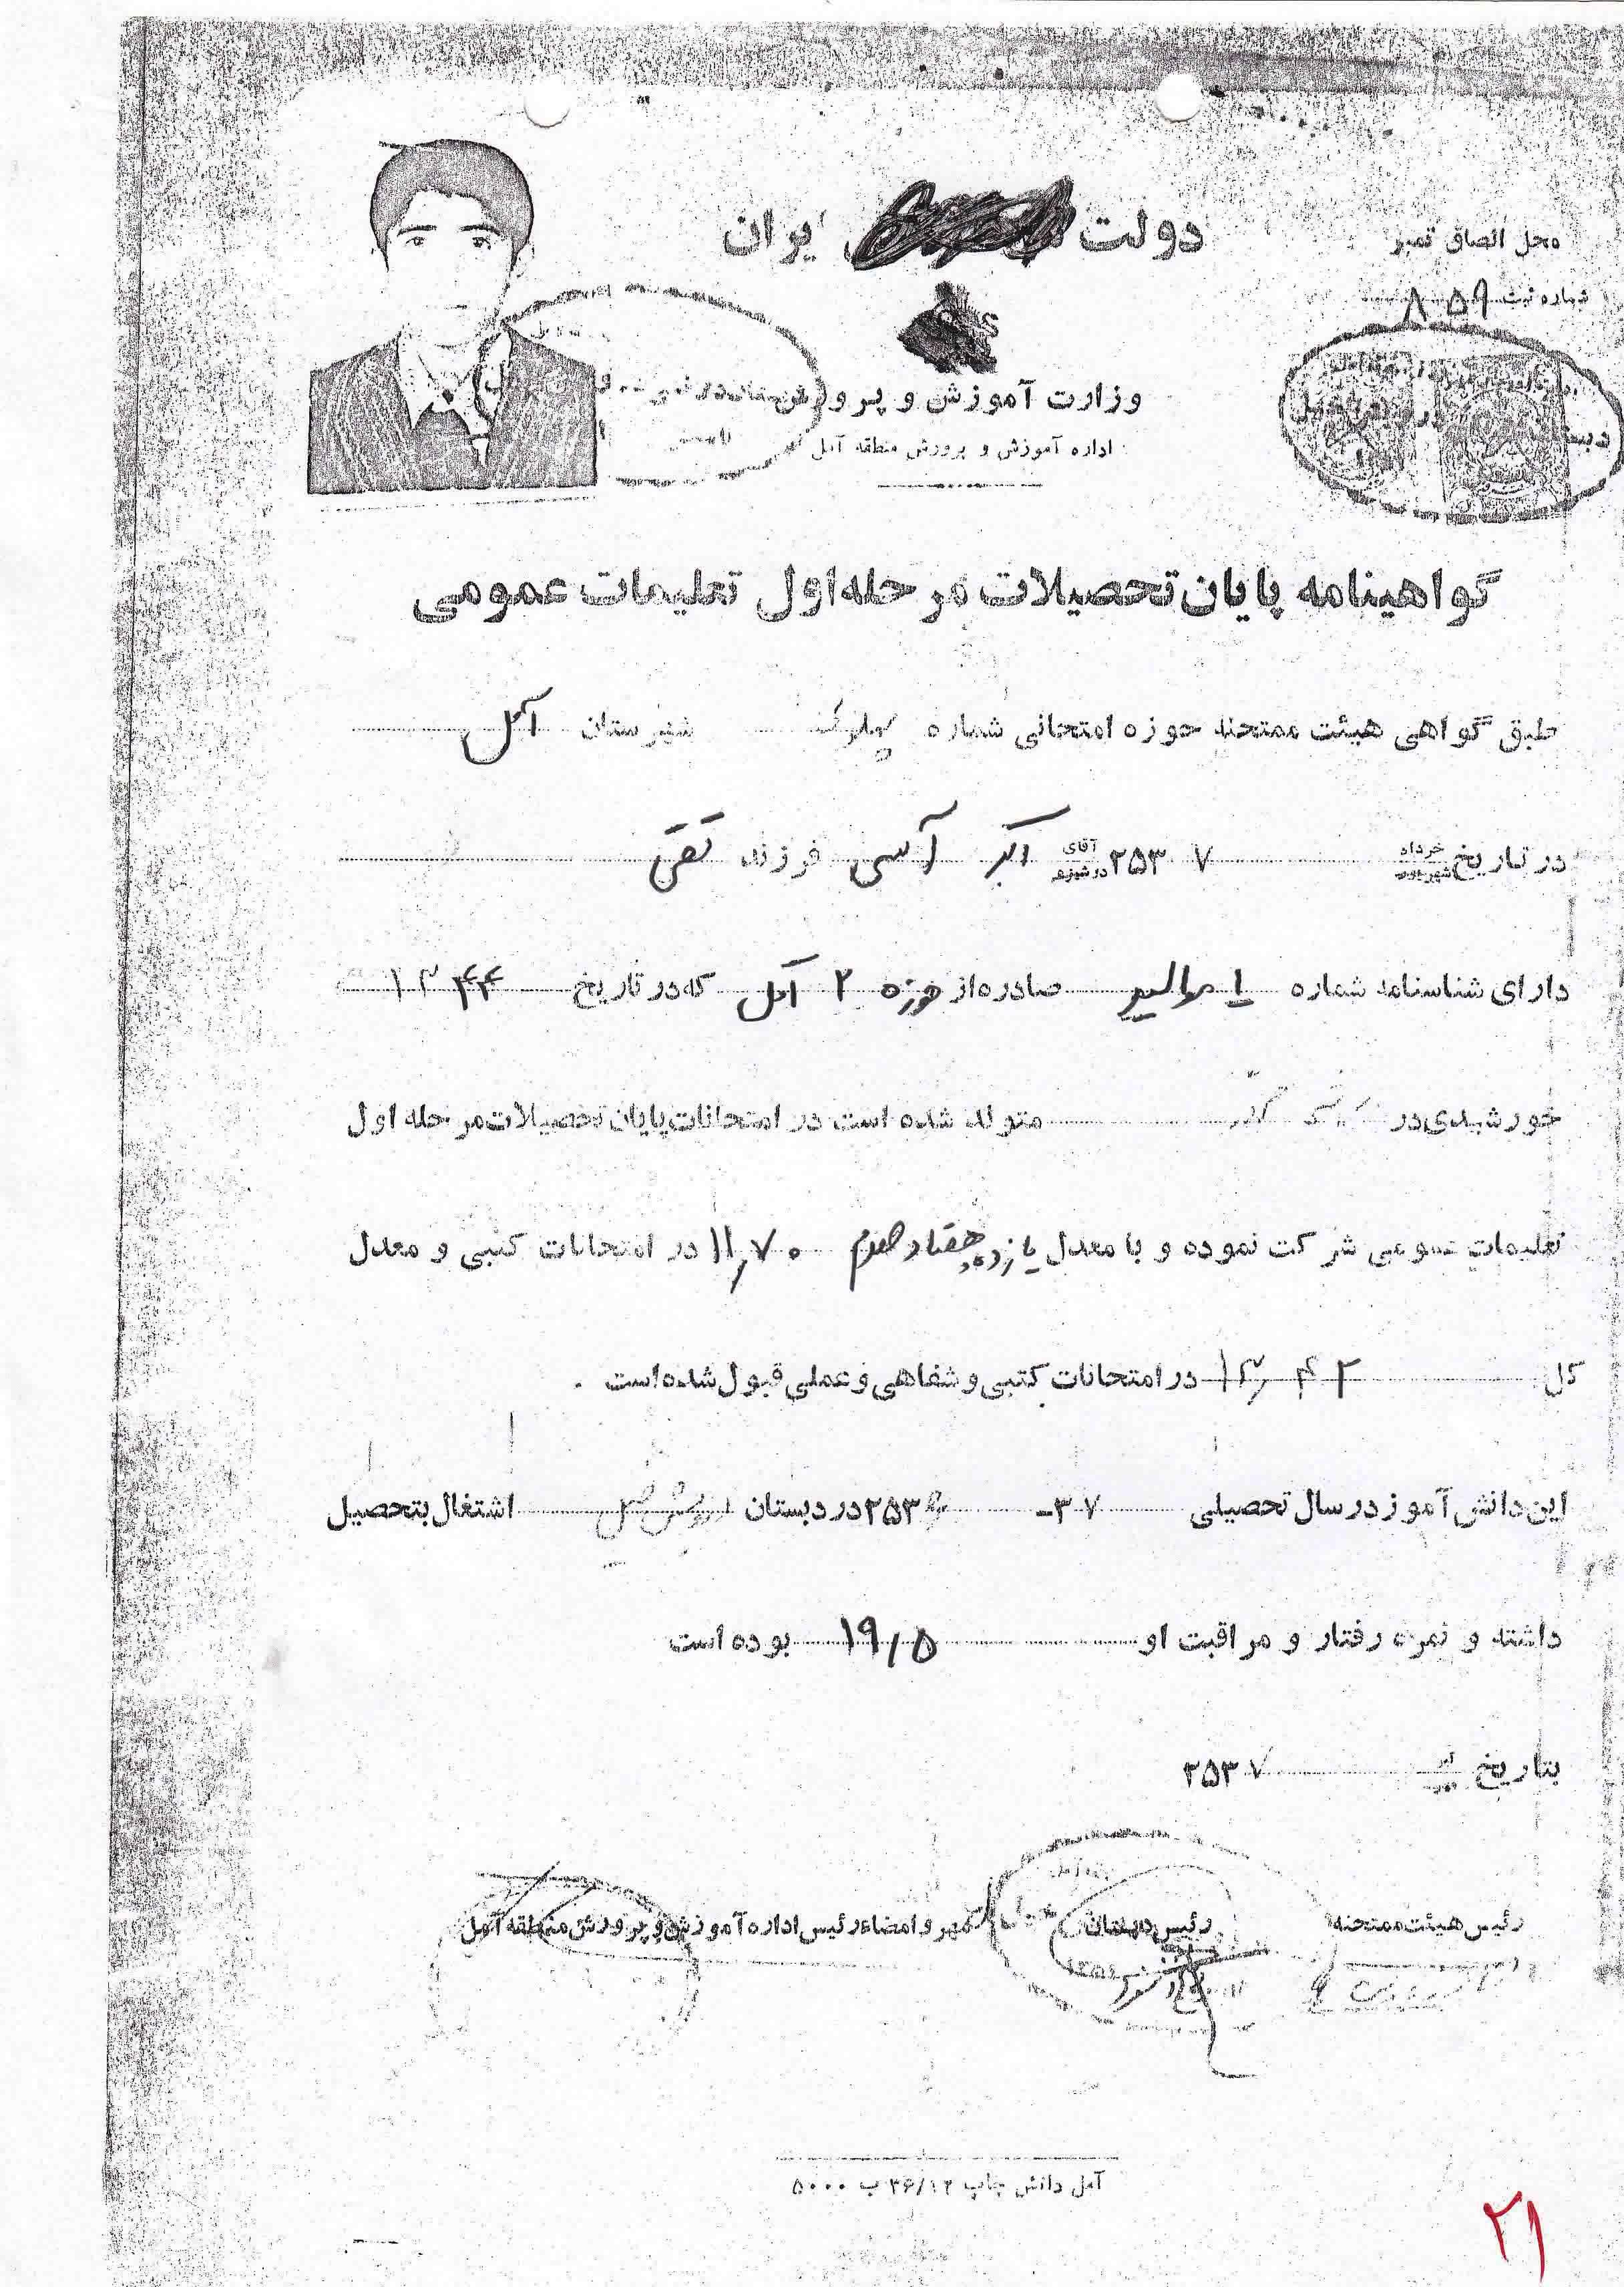 دولت ایران
محل الصاق تمبر
شماره ثبت ۸۵۹
وزارت آموزش و پرورش
اداره آموزش و پرورش منطقه آمل
گواهینامه پایان تحصیلات مرحله اول تعلیمات عمومی
طبق گواهی هیئت ممتحنه حوزه امتحانی شماره شهرستان آمل
در تاریخ خرداد شهریور ۲۵۳۷ آقای دوشیزه اکبر آسی فرزند تقی
دارای شناسنامه شماره ۱ صادره از حوزه ۲ آمل که در تاریخ ۱۳۴۴
خورشیدی در متولد شده است در امتحانات پایان تحصیلات مرحله اول
تعلیمات عمومی شرکت نموده و با معدل یازده و هفتاد صدم ۱۱٫۷۰ در امتحانات کتبی و معدل
کل ۱۲٫۴۲ در امتحانات کتبی و شفاهی و عملی قبول شده است .
این دانش آموز در سال تحصیلی ۳۷-۲۵۳۶ در دبستان اشتغال بتحصیل
داشته و نمره رفتار و مراقبت او ۱۹/۵ بوده است
بتاریخ ۲۵۳۷
رئیس هیئت ممتحنه
رئیس دبستان
مهر و امضاء رئیس اداره آموزش و پرورش منطقه آمل
آمل دانش چاپ ۳۶/۱۲ ب ۵۰۰۰
۲۱